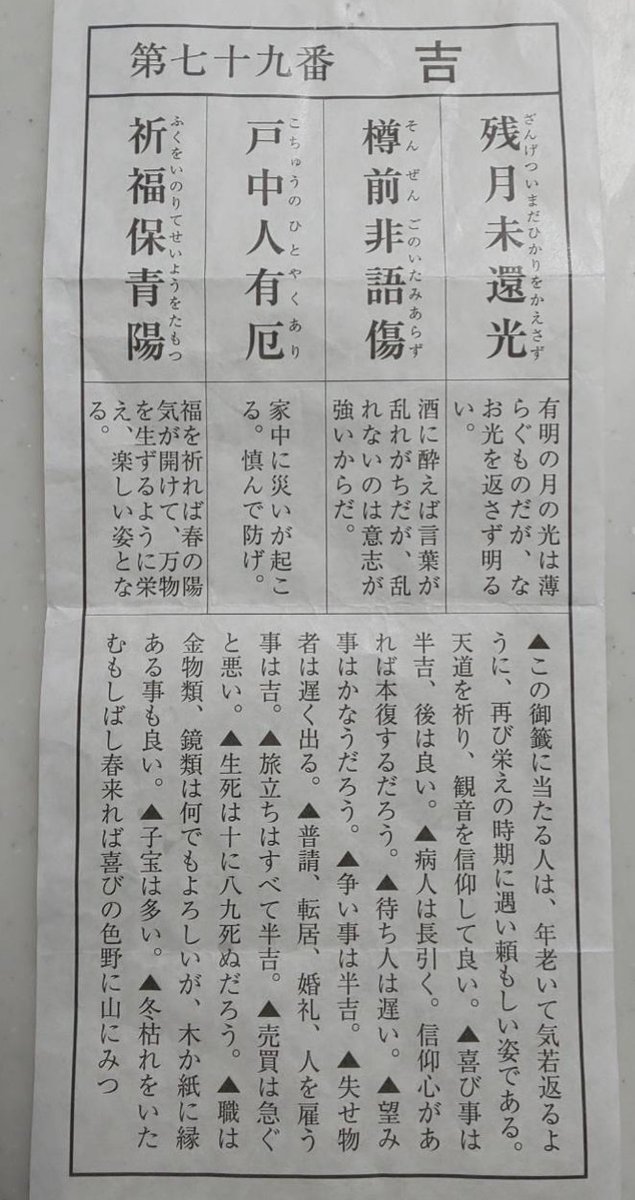 第七十九番 吉
残月未還光
ざんげついまだひかりをかえさず
有明の月の光は薄
らぐものだが、な
お光を返さず明る
い。
樽前非語傷
そんぜんごのいたみあらず
酒に酔えば言葉が
乱れがちだが、乱
れないのは意志が
強いからだ。
戸中人有厄
こちゅうのひとやくあり
家中に災いが起こ
る。慎んで防げ。
祈福保青陽
ふくをいのりてせいようをたもつ
福を祈れば春の陽
気が開けて、万物
を生ずるように栄
え、楽しい姿とな
る。
▲この御籤に当たる人は、年老いて気若返るよ
うに、再び栄えの時期に遇い頼もしい姿である。
天道を祈り、観音を信仰して良い。▲喜び事は
半吉、後は良い。▲病人は長引く。信仰心があ
れば本復するだろう。▲待ち人は遅い。▲望み
事はかなうだろう。▲争い事は半吉。▲失せ物
者は遅く出る。▲普請、転居、婚礼、人を雇う
事は吉。▲旅立ちはすべて半吉。▲売買は急ぐ
と悪い。▲生死は十に八九死ぬだろう。▲職は
金物類、鏡類は何でもよろしいが、木か紙に縁
ある事も良い。▲子宝は多い。▲冬枯れをいた
むもしばし春来れば喜びの色野に山にみつ